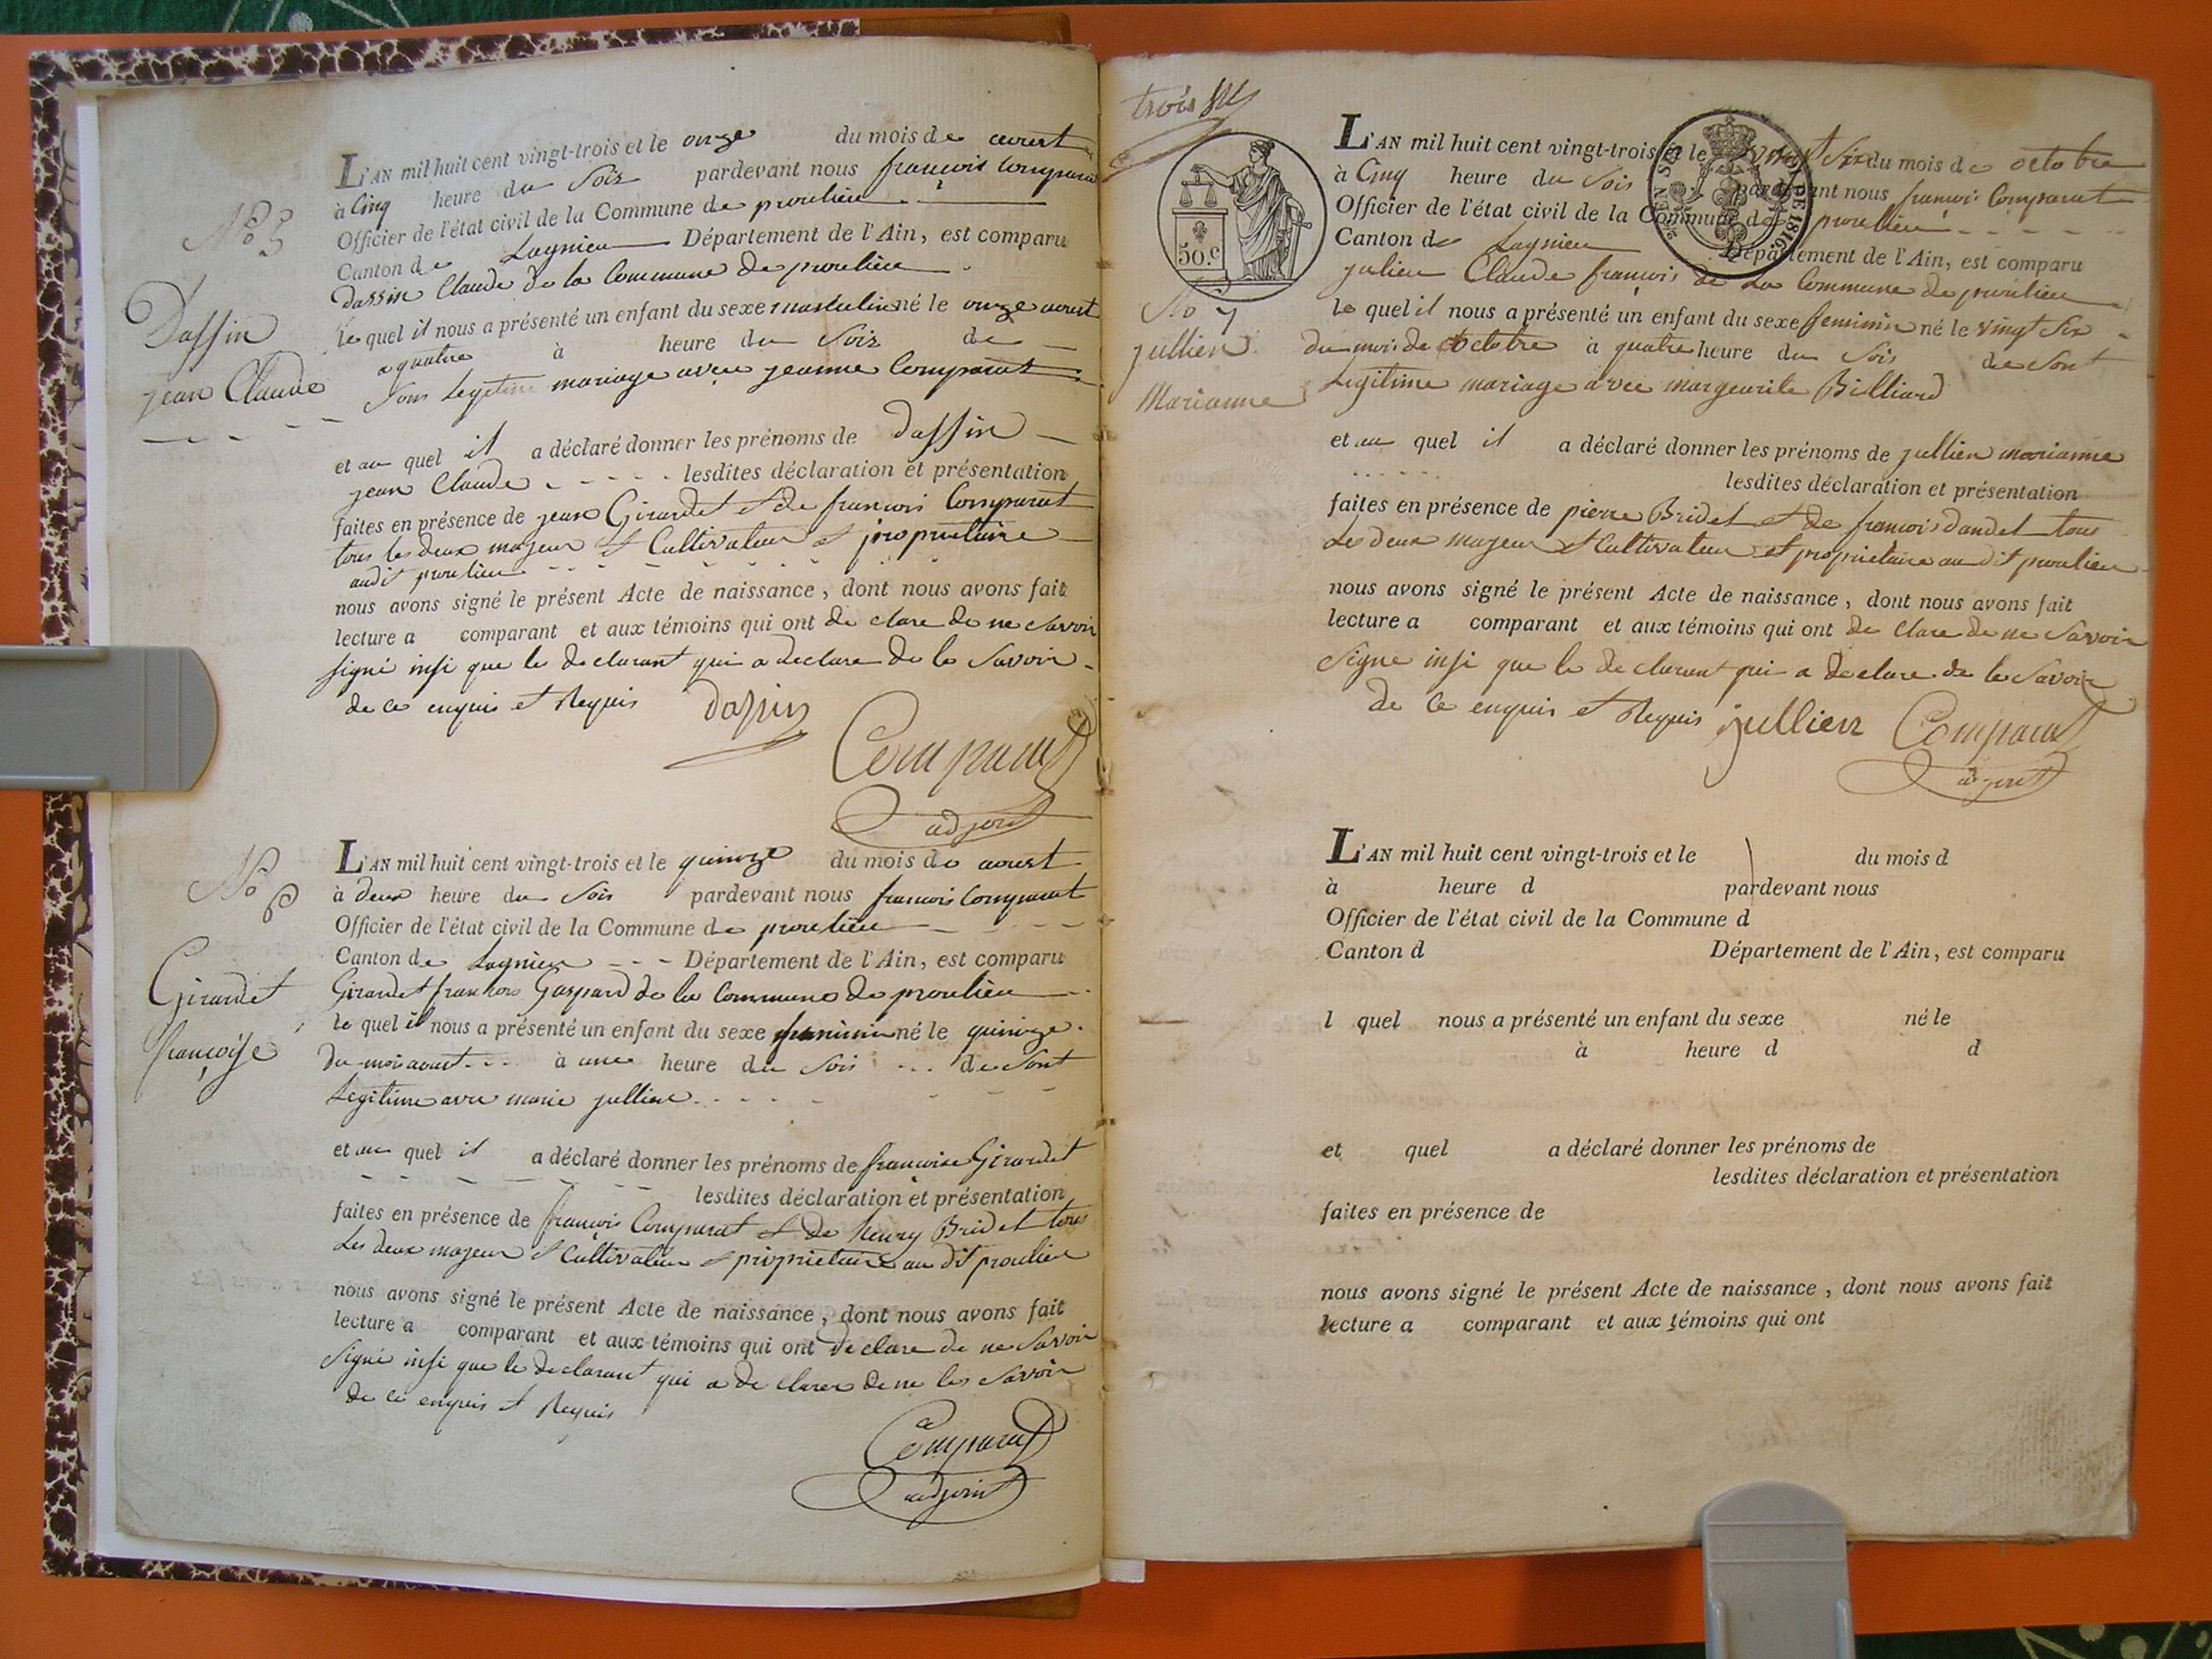 N° 5
Dassin
jean Claude
L'AN mil huit cent vingt-trois et le onze du mois de aoust
à Cinq heure du Soir pardevant nous françois Comparat
Officier de l'état civil de la Commune de proulieu
Canton de Lagnieu Département de l'Ain, est comparu
dassin Claude de la Commune de proulieu
le quel il nous a présenté un enfant du sexe masculin né le onze aoust
a quatre à heure du Soir de
Son Legetime mariage avec jeanne Comparat
et au quel il a déclaré donner les prénoms de dassin
jean Claude lesdites déclaration et présentation
faites en présence de jean Girardet et de francois Comparat
tous les deux majeur et Cultivateur et propriétaire
audit proulieu
nous avons signé le présent Acte de naissance, dont nous avons fait
lecture a comparant et aux témoins qui ont de clare de ne Savoir
signé insi que le declarant qui a declare de le Savoir
de ce enquis et Requis dassin
Comparat
adjoint
N° 6
Girardet
françoise
L'AN mil huit cent vingt-trois et le quinze du mois de aoust
à deux heure du Soir pardevant nous francois Comparat
Officier de l'état civil de la Commune de proulieu
Canton de Lagnieu Département de l'Ain, est comparu
Girardet francois Gaspard de la Commune de proulieu
le quel il nous a présenté un enfant du sexe feminin né le quinze
du mois aoust à une heure du Soir de Sont
Legitime avec marie jullien
et au quel il a déclaré donner les prénoms de françoise Girardet
lesdites déclaration et présentation
faites en présence de françois Comparat et de henry Bridet tous
Les deux majeur et Cultivateur et propriétaire au dit proulieu
nous avons signé le présent Acte de naissance, dont nous avons fait
lecture a comparant et aux témoins qui ont declare de ne Savoir
Signé insi que le declarant qui a de clarer de ne les Savoir
de ce enquis et Requis
Comparat
adjoint
trois
50.c
N° 7
jullien
Marianne
L'AN mil huit cent vingt-trois et le vingt Six du mois de octobre
à Cinq heure du Soir pardevant nous françois Comparat
Officier de l'état civil de la Commune de proulieu
Canton de Lagnieu Département de l'Ain, est comparu
julien Claude françois de La Commune de proulieu
le quel il nous a présenté un enfant du sexe feminin né le vingt Six
du mois de Octobre à quatre heure du Soir de Sont
Legitime mariage avec margeurite Billiard
et au quel il a déclaré donner les prénoms de jullien marianne
lesdites déclaration et présentation
faites en présence de pierre Bridet et de francois dandel tous
Les deux majeur et Cultivateur et proprietaire au dit proulieu
nous avons signé le présent Acte de naissance, dont nous avons fait
lecture a comparant et aux témoins qui ont de clare de ne Savoir
Signe insi que le de clarant qui a declare de le Savoir
de Ce enquis et Requis jullien Comparat
adjoint
L'AN mil huit cent vingt-trois et le du mois d
à heure d pardevant nous
Officier de l'état civil de la Commune d
Canton d Département de l'Ain, est comparu
l quel nous a présenté un enfant du sexe né le
à heure d d
et quel a déclaré donner les prénoms de
lesdites déclaration et présentation
faites en présence de
nous avons signé le présent Acte de naissance, dont nous avons fait
lecture a comparant et aux témoins qui ont